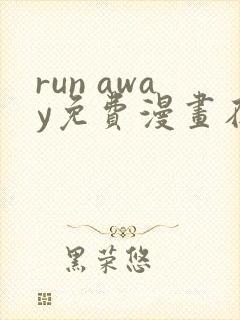 run awa
y免費漫畫在
黑荣悠